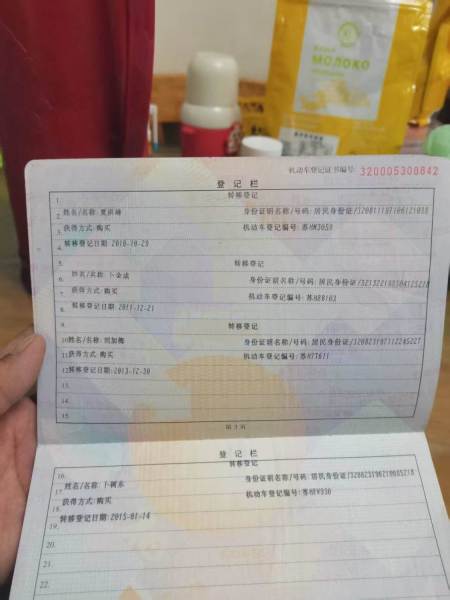 МОЛОКО
机动车登记证书编号: 320005300842
登记栏
1. 转移登记
2. 姓名/名称: 身份证明名称/号码: 居民身份证
3. 获得方式: 购买 机动车登记编号: 苏HM3059
4. 转移登记日期: 2010-10-29
5. 转移登记
6. 姓名/名称: 卜金成 身份证明名称/号码: 居民身份证
7. 获得方式: 购买 机动车登记编号: 苏H88103
8. 转移登记日期: 2011-12-21
9. 转移登记
10. 姓名/名称: 身份证明名称/号码: 居民身份证
11. 获得方式: 购买 机动车登记编号: 苏H7T611
12. 转移登记日期: 2013-12-30
13.
14.
15.
第3页
登记栏
16. 转移登记
17. 姓名/名称: 卜树东 身份证明名称/号码: 居民身份证
18. 获得方式: 购买 机动车登记编号:
19. 转移登记日期: 2015-01-14
20.
21.
22.